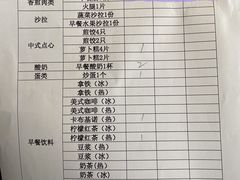 香煎肉类 火腿1片
沙拉 蔬菜沙拉1份
早餐水果沙拉1份
中式点心 煎饺4只
煎饺2只
萝卜糕4片 1
萝卜糕2片
酸奶 早餐酸奶1杯 2
蛋类 炒蛋1个 1
早餐饮料 拿铁（冰）
拿铁（热）
美式咖啡（冰）
美式咖啡（热）
卡布基诺（热） 1
柠檬红茶（冰）
柠檬红茶（热） 1
豆浆（冰）
豆浆（热）
奶茶（热）
奶茶（冰）